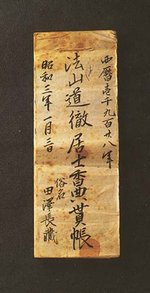 西暦壱千九百廿八年
法山道徹居士香奠貰帳
俗名 田澤長藏
昭和三年一月三日